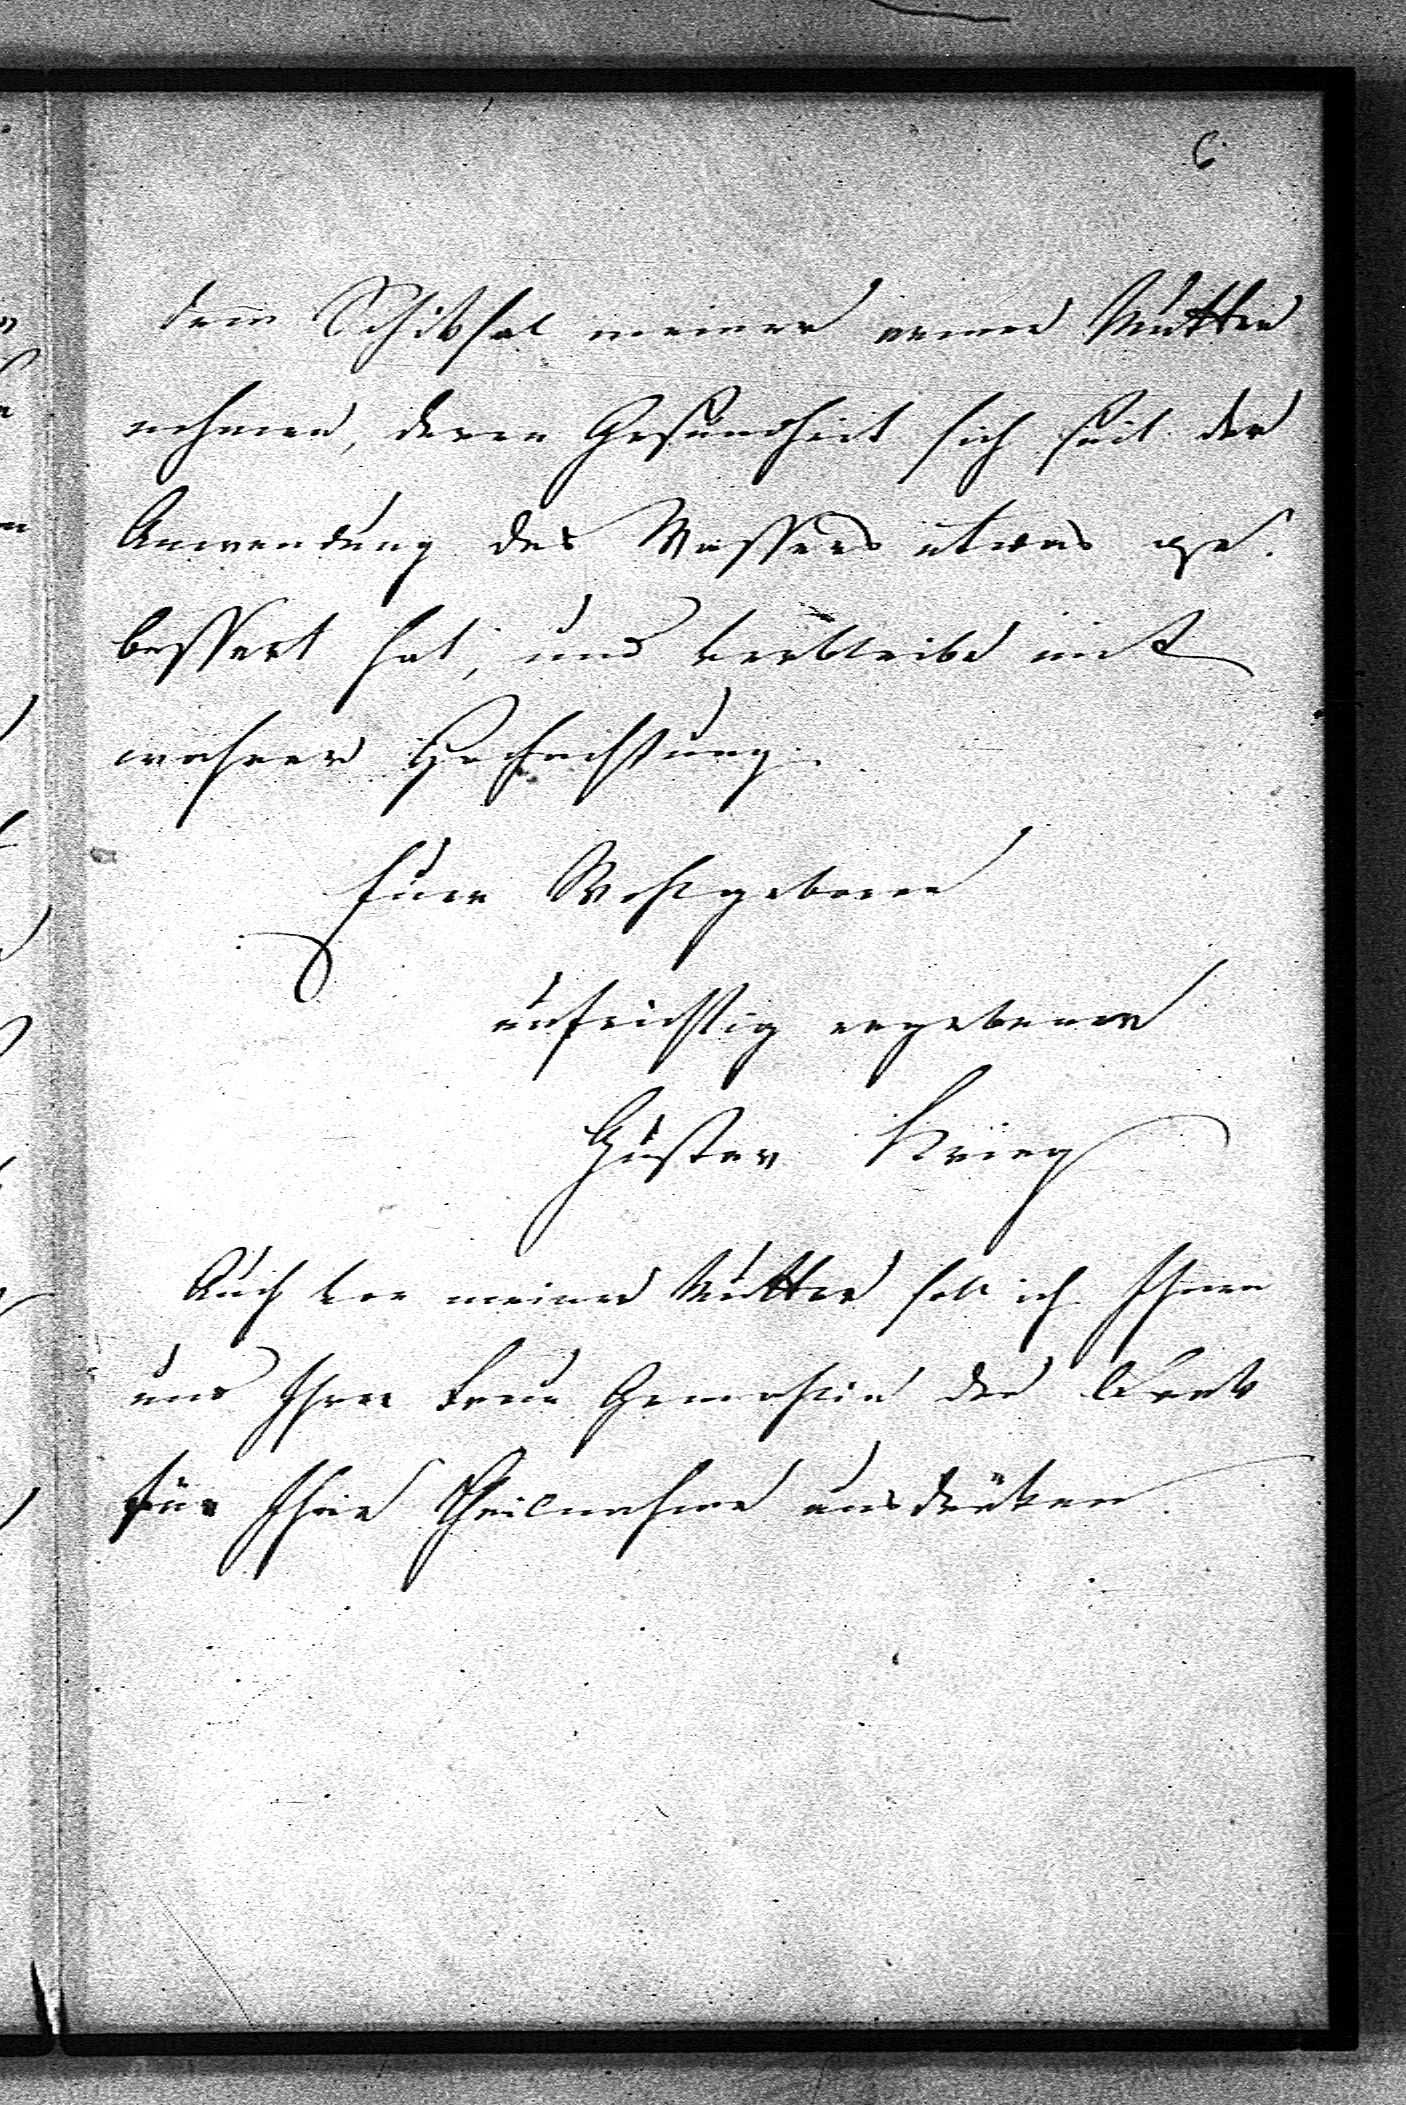 6
dem Schiksal meiner armen Mutter
nehmen, deren Gesundheit sich seit der
Anwendung des Wassers etwas ge-
bessert hat, und verbleibe mit
wahrer Hochachtung
Euer Wohlgeboren
aufrichtig ergebener
Gustav Krieg
Auch von meiner Mutter soll ich Ihnen
und Ihrer Frau Gemahlin den Dank
für Ihre Theilnahme ausdrüken.